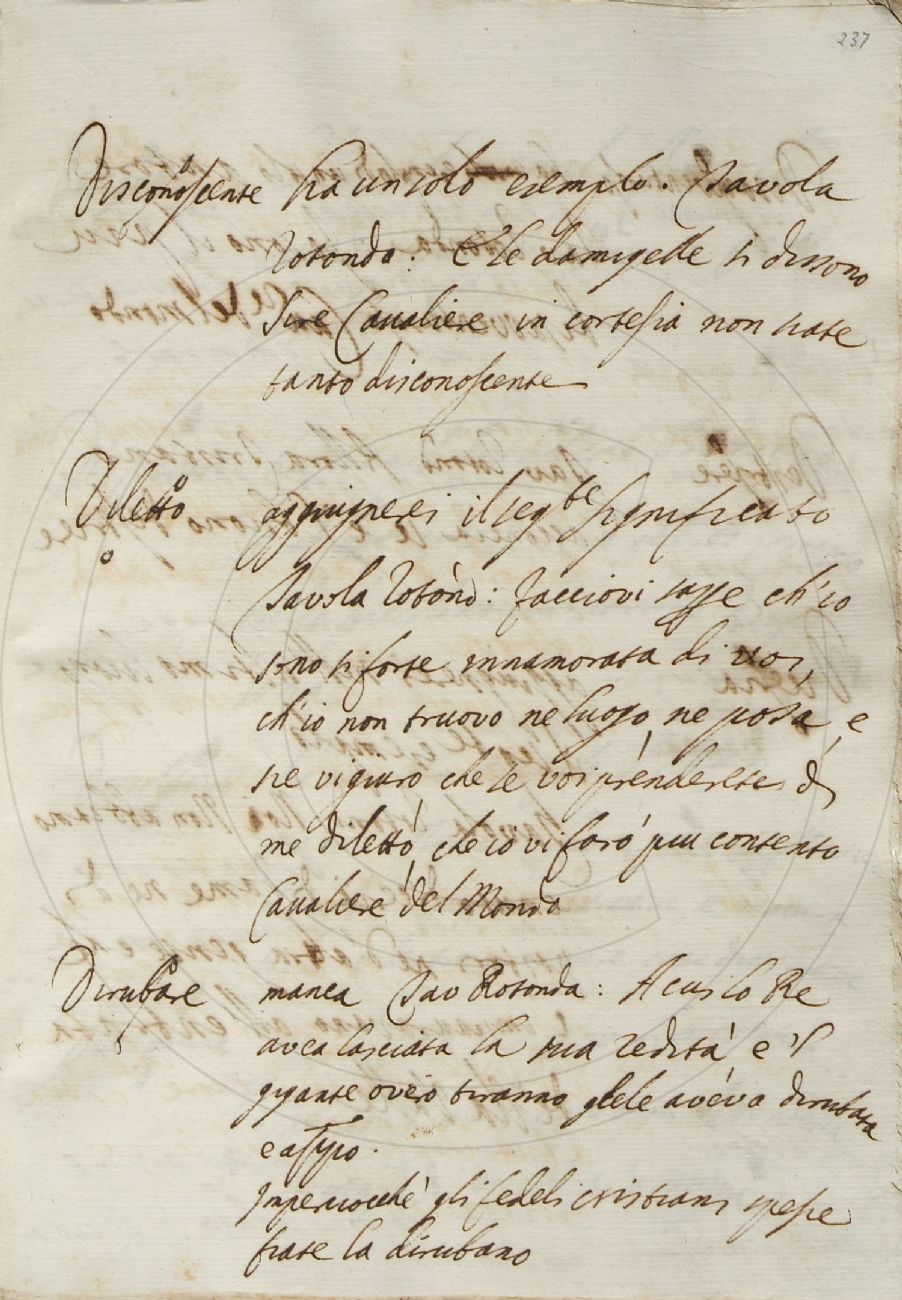 237
Disconoscente ha un solo esemplo. Tavola
Rotonda. E le damigelle si dissono
Sire Cavaliere in cortesia non siate
tanto disconoscente
Diletto aggiugnerei il seg.te significato
Tavola Roton.: facciovi sasse ch'io
sono si forte innamorata di voi,
ch'io non truovo ne luogo, ne posa, e
sie vi giuro, che se voi prenderete di
me diletto, che io vi farò piu contento
Cavaliere del Mondo
Dirubare manca Tav Rotonda: A cui lo Re
avea lasciata la sua redità e 'l
gigante overo tiranno glele aveva dirubata
e
Imperciocchè gli fedeli cristiani spesse
fiate la dirubano